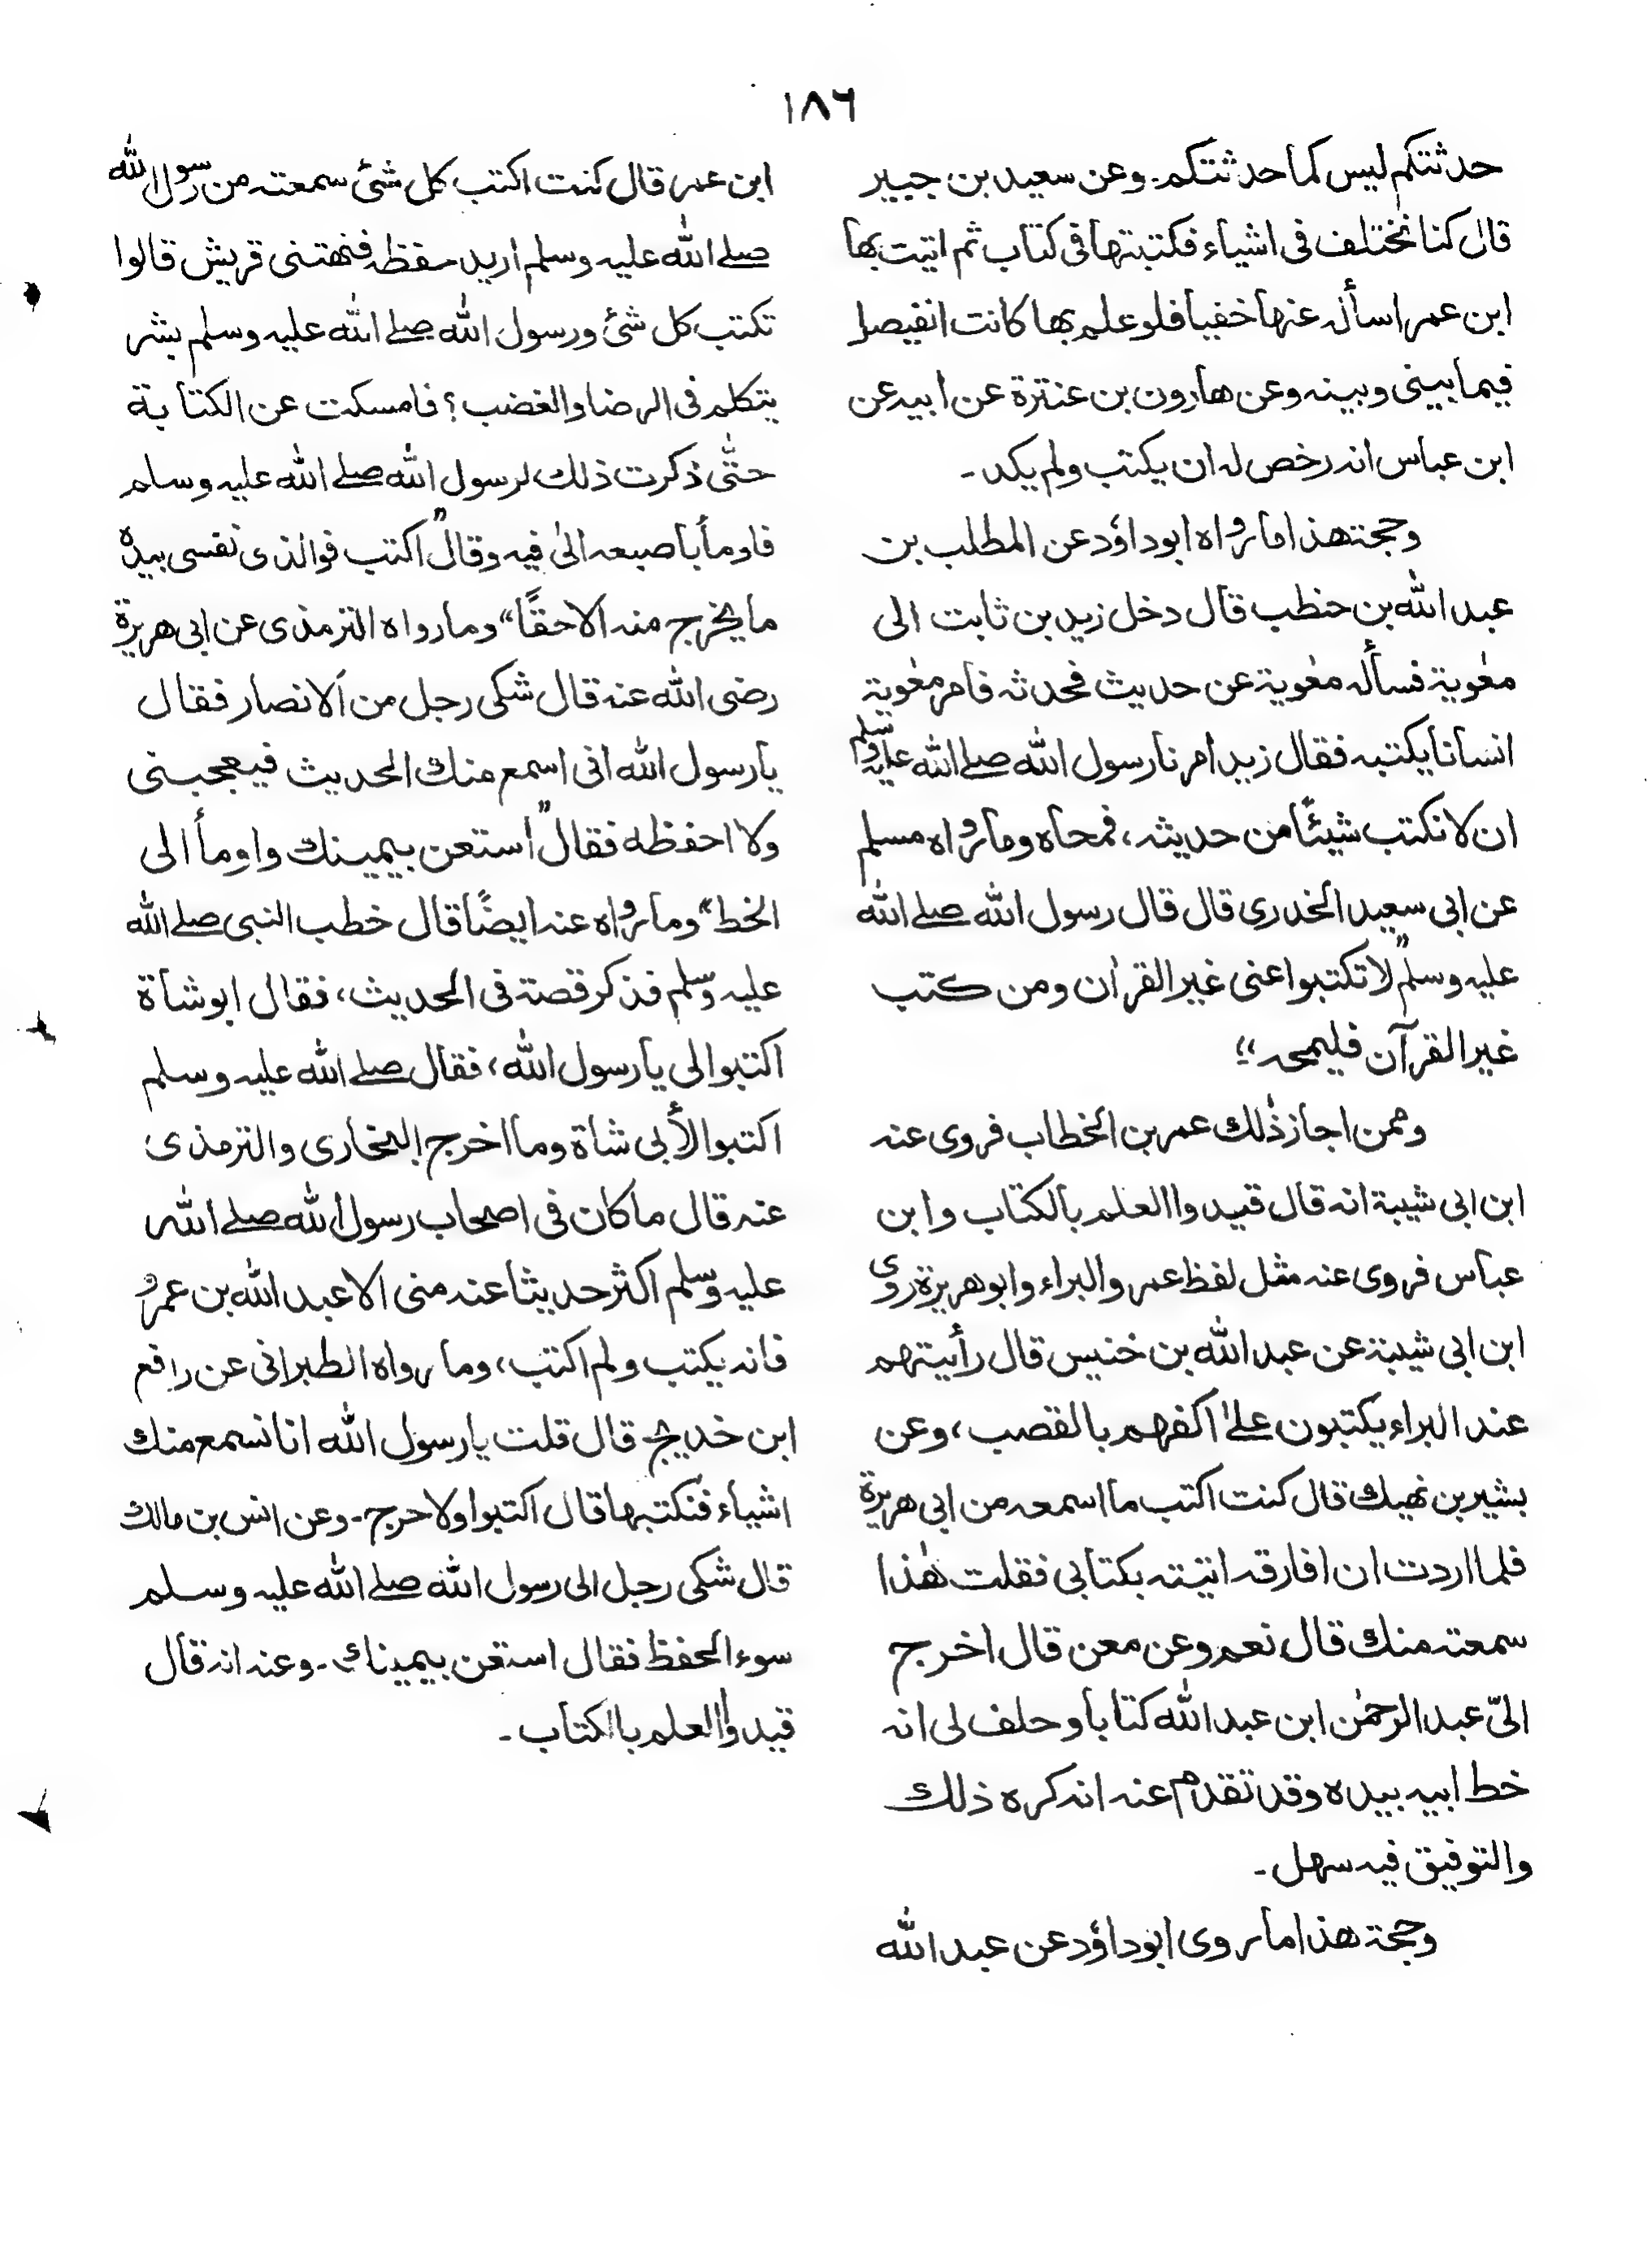 ١٨٦
حدثتكم ليس كما حدثتكم. وعن سعيد بن جبير
قال كنا نختلف فى اشياء فكتبتها فى كتاب ثم اتيت بها
ابن عمر اسأله عنها خفيا فلو علم بها كانت انفيصل
فيما بينى وبينه وعن هارون بن عنترة عن ابيه عن
ابن عباس انه رخص له ان يكتب ولم يكد۔
وحجة هذا ما رواه ابو داؤد عن المطلب بن
عبد الله بن حنطب قال دخل زيد بن ثابت الى
معٰوية فسأله معٰوية عن حديث فحدثه فامر معٰوية
انسانا يكتبه فقال زيد امرنا رسول الله صلے الله عليه وسلم
ان لا نكتب شيئًا من حديثه، فمحاه وما رواه مسلم
عن ابى سعيد الخدرى قال قال رسول الله صلے الله
عليه وسلم "لا تكتبوا عنى غير القراٰن ومن كتب
غير القرآن فليمحه"؛
وممن اجاز ذٰلك عمر بن الخطاب فروى عنه
ابن ابى شيبة انه قال قيدوا العلم بالكتاب وابن
عباس فروى عنه مثل لفظ عمر والبراء وابو هريرة روى
ابن ابى شيبة عن عبد الله بن خنيس قال رأيتهم
عند البراء يكتبون علىٰ اكفهم بالقصب، وعن
بشير بن نهيك قال كنت اكتب ما اسمعه من ابى هريرة
فلما اردت ان افارقه اتيته بكتابى فقلت هٰذا
سمعته منك قال نعم وعن معن قال اخرج
الىّ عبد الرحمٰن ابن عبد الله كتابا وحلف لى انه
خط ابيه بيده وقد تقدم عنه انه كره ذلك
والتوفيق فيه سهل۔
وحجة هذا ما روى ابو داؤد عن عبد الله
ابن عمر قال كنت اكتب كل شئ سمعته من رسول الله
صلے الله عليه وسلم اريد حفظه فنهتنى قريش قالوا
تكتب كل شئ ورسول الله صلے الله عليه وسلم بشر
يتكلم فى الرضا والغضب؟ فامسكت عن الكتابة
حتّٰى ذكرت ذلك لرسول الله صلے الله عليه وسلم
فاومأ باصبعه الىٰ فيه وقال "اكتب فوالذى نفسى بيده
ما يخرج منه الا حقًا" وما رواه الترمذى عن ابى هريرة
رضى الله عنه قال شكى رجل من الانصار فقال
يا رسول الله انى اسمع منك الحديث فيعجبنى
ولا احفظه فقال "استعن بيمينك واومأ الى
الخط" وما رواه عنه ايضًا قال خطب النبى صلے الله
عليه وسلم فذكر قصة فى الحديث، فقال ابو شاة
اكتبوا لى يا رسول الله، فقال صلے الله عليه وسلم
اكتبوا لأبى شاة وما اخرج البخارى والترمذى
عنه قال ما كان فى اصحاب رسول الله صلے الله
عليه وسلم اكثر حديثا عنه منى الا عبد الله بن عمرو
فانه يكتب ولم اكتب، وما رواه الطبرانى عن رافع
ابن خديج قال قلت يا رسول الله انا نسمع منك
اشياء فنكتبها قال اكتبوا ولا حرج۔ وعن انس بن مالك
قال شكى رجل الى رسول الله صلے الله عليه وسلم
سوء الحفظ فقال استعن بيمينك۔ وعنه انه قال
قيدوا العلم بالكتاب۔